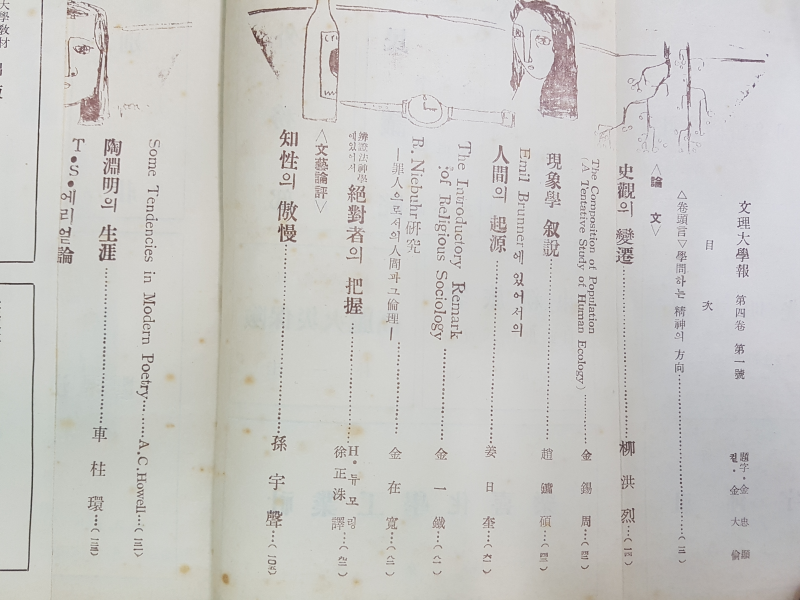 文理大學報 第四卷 第一號
目次
題字·金忠顯
컽·金大倫
△卷頭言▽學問하는 精神의 方向
〈論文〉
史觀의 變遷 柳洪烈
The Composition of Population
(A Tentative Study of Human Ecology) 金錫周
現象學 叙說 趙鏞碩
Emil Brunner에 있어서의
人間의 起源 姜日奎
The Introductory Remark
of Religious Sociology 金一鐵
R. Niebuhr硏究
―罪人으로서의人間과그倫理― 金在寬
辨證法神學
에있어서 絕對者의 把握 H·듀모링
徐正洙 譯
〈文藝論評〉
知性의 傲慢 孫宇聲
Some Tendencies in Modern Poetry A.C.Howell
陶淵明의 生涯 車柱環
T·S·에리얼論
大學敎材